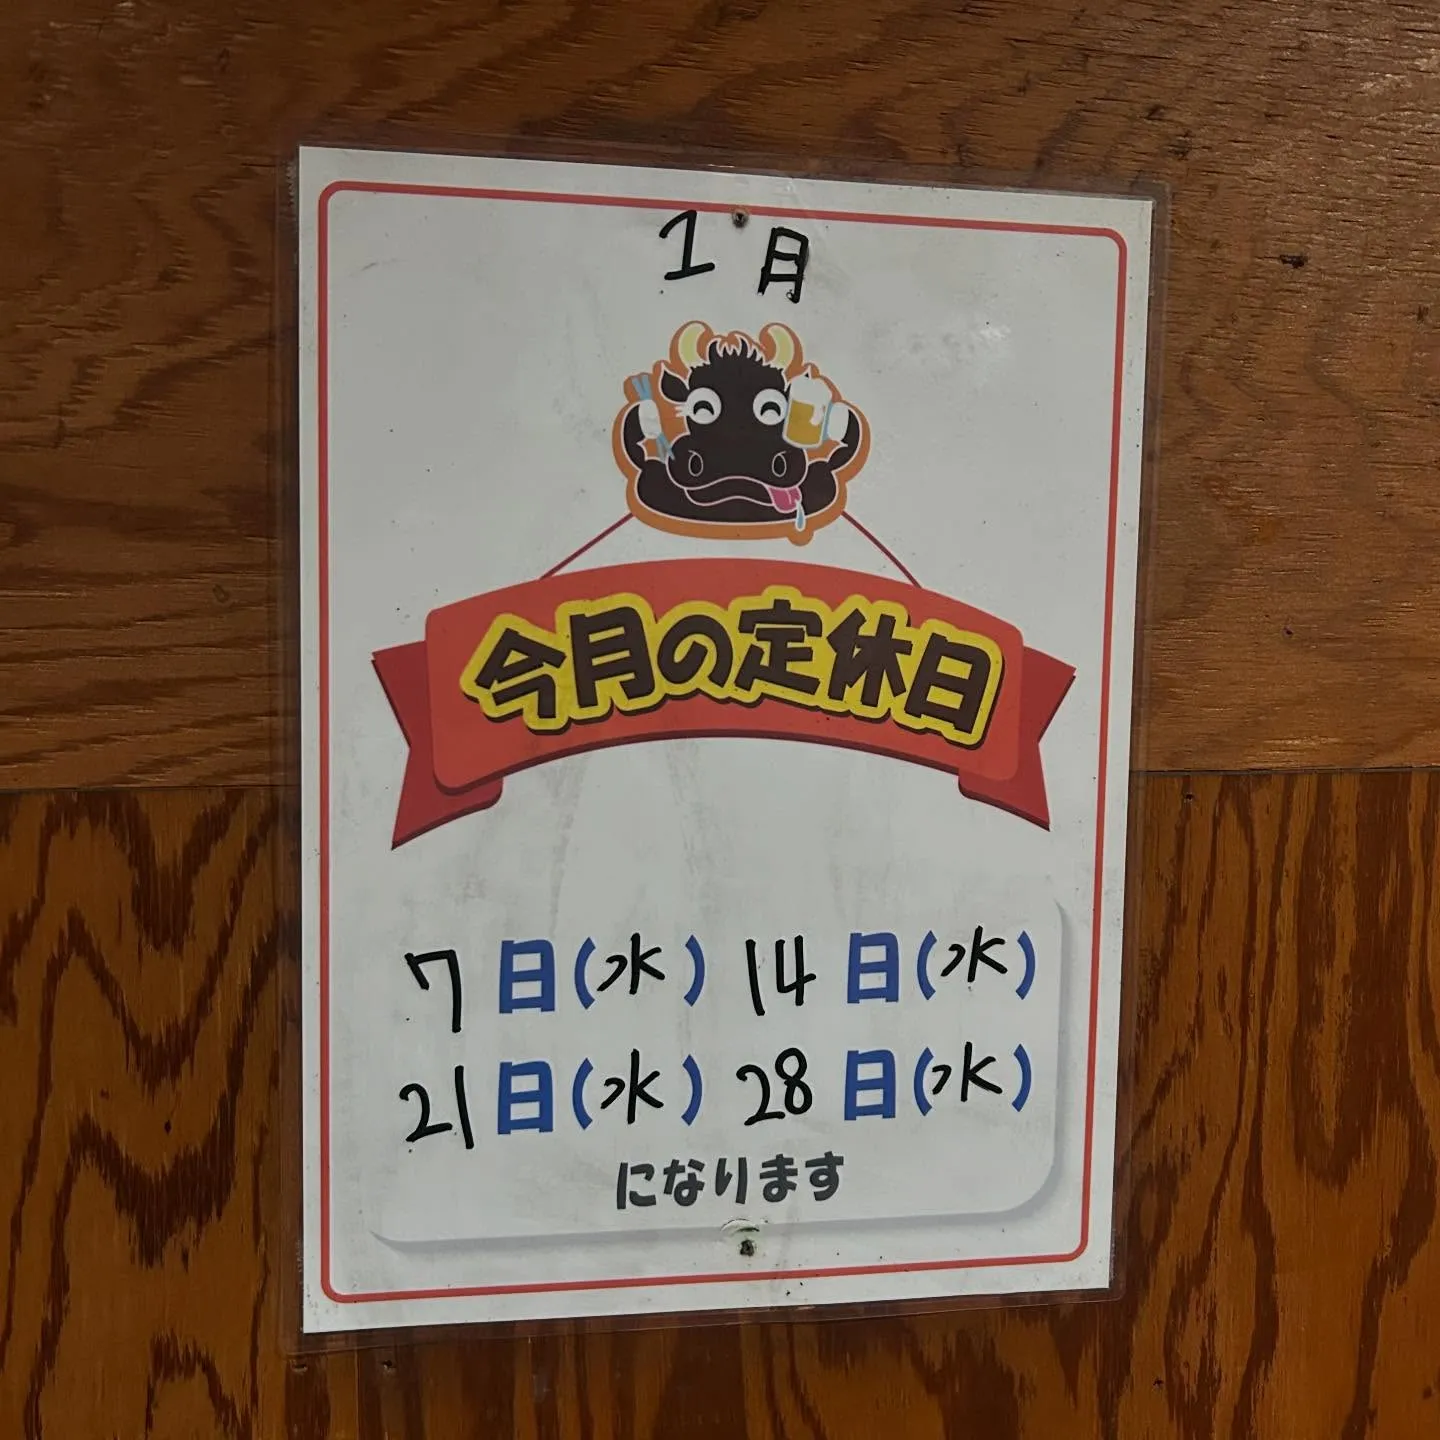 1月
今月の定休日
7日(水) 14日(水)
21日(水) 28日(水)
になります